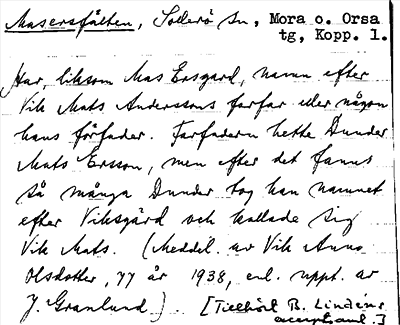 Masersfälten, Sollerö sn, Mora o. Orsa
tg, Kopp. l.
Har, liksom Mas Ersgard, namn efter
Vik Mats Anderssons farfar eller någon
hans förfader. Farfadern hette Dunder
Mats Ersson, men efter det fanns
så många Dunder tog han namnet
efter Viksgård och kallade sig
Vik Mats. (Meddel. av Vik Anna
Olsdotter, 77 år 1938, enl. uppt. av
J. Granlund.) [Tillhört B. Lindéns
excerptsaml.]